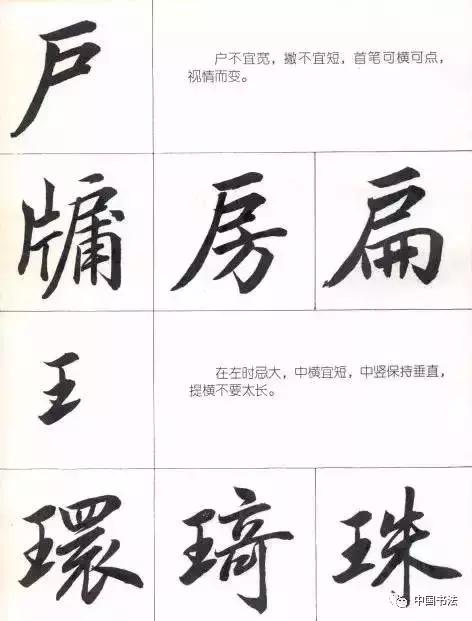 户
户不宜宽，撇不宜短，首笔可横可点，
视情而变。
牖 房 扁
王
在左时忌大，中横宜短，中竖保持垂直，
提横不要太长。
環 琦 珠
中国书法